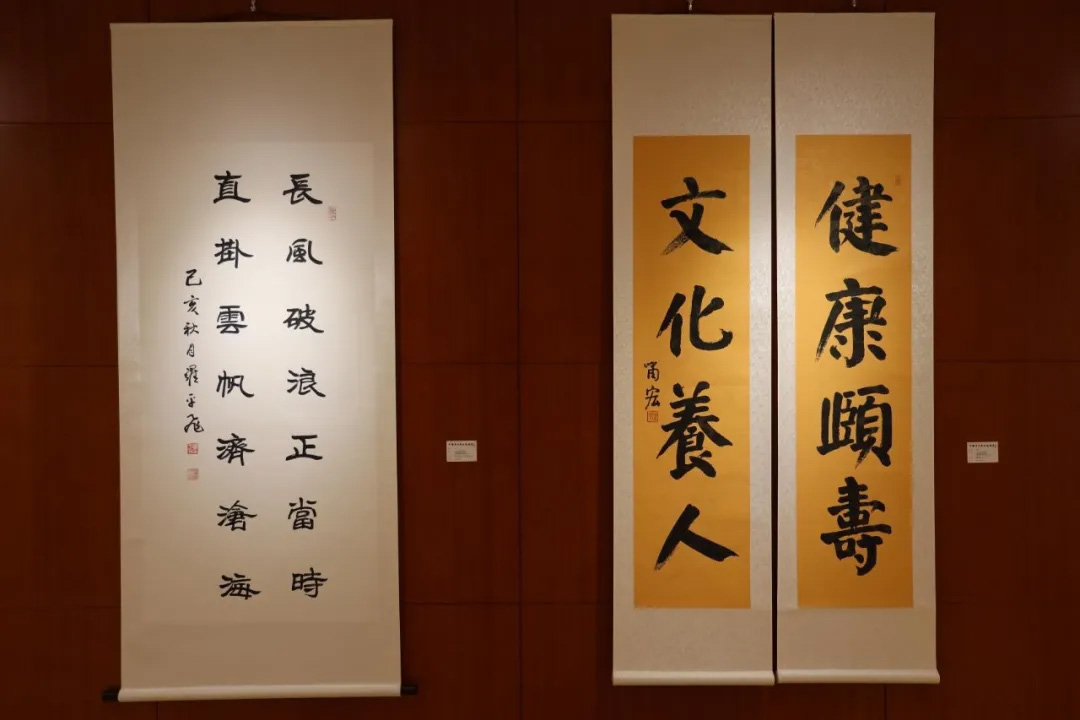 長風破浪正當時
直掛雲帆濟滄海
己亥秋月羅平飛
健康頤壽
文化養人